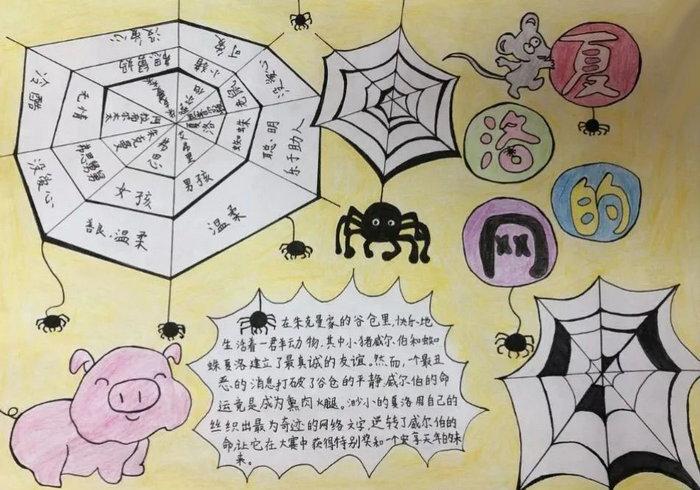 夏
洛
的
网
没有心
可爱
小猪
没有心
老鼠
聪明
乐于助人
蜘蛛
夏洛
男孩
温柔
女孩
善良、温柔
没有心
无情
冷酷
在朱克曼家的谷仓里,快乐地
生活着一群动物,其中小猪威尔伯和蜘
蛛夏洛建立了最真诚的友谊。然而,一个最丑
恶的消息打破了谷仓的平静威尔伯的命
运竟是成为熏肉火腿。渺小的夏洛用自己的
丝织出最为奇迹的网络文字,逆转了威尔伯的
命,让它在大赛中获得特别奖和一个安享天年的未
来。